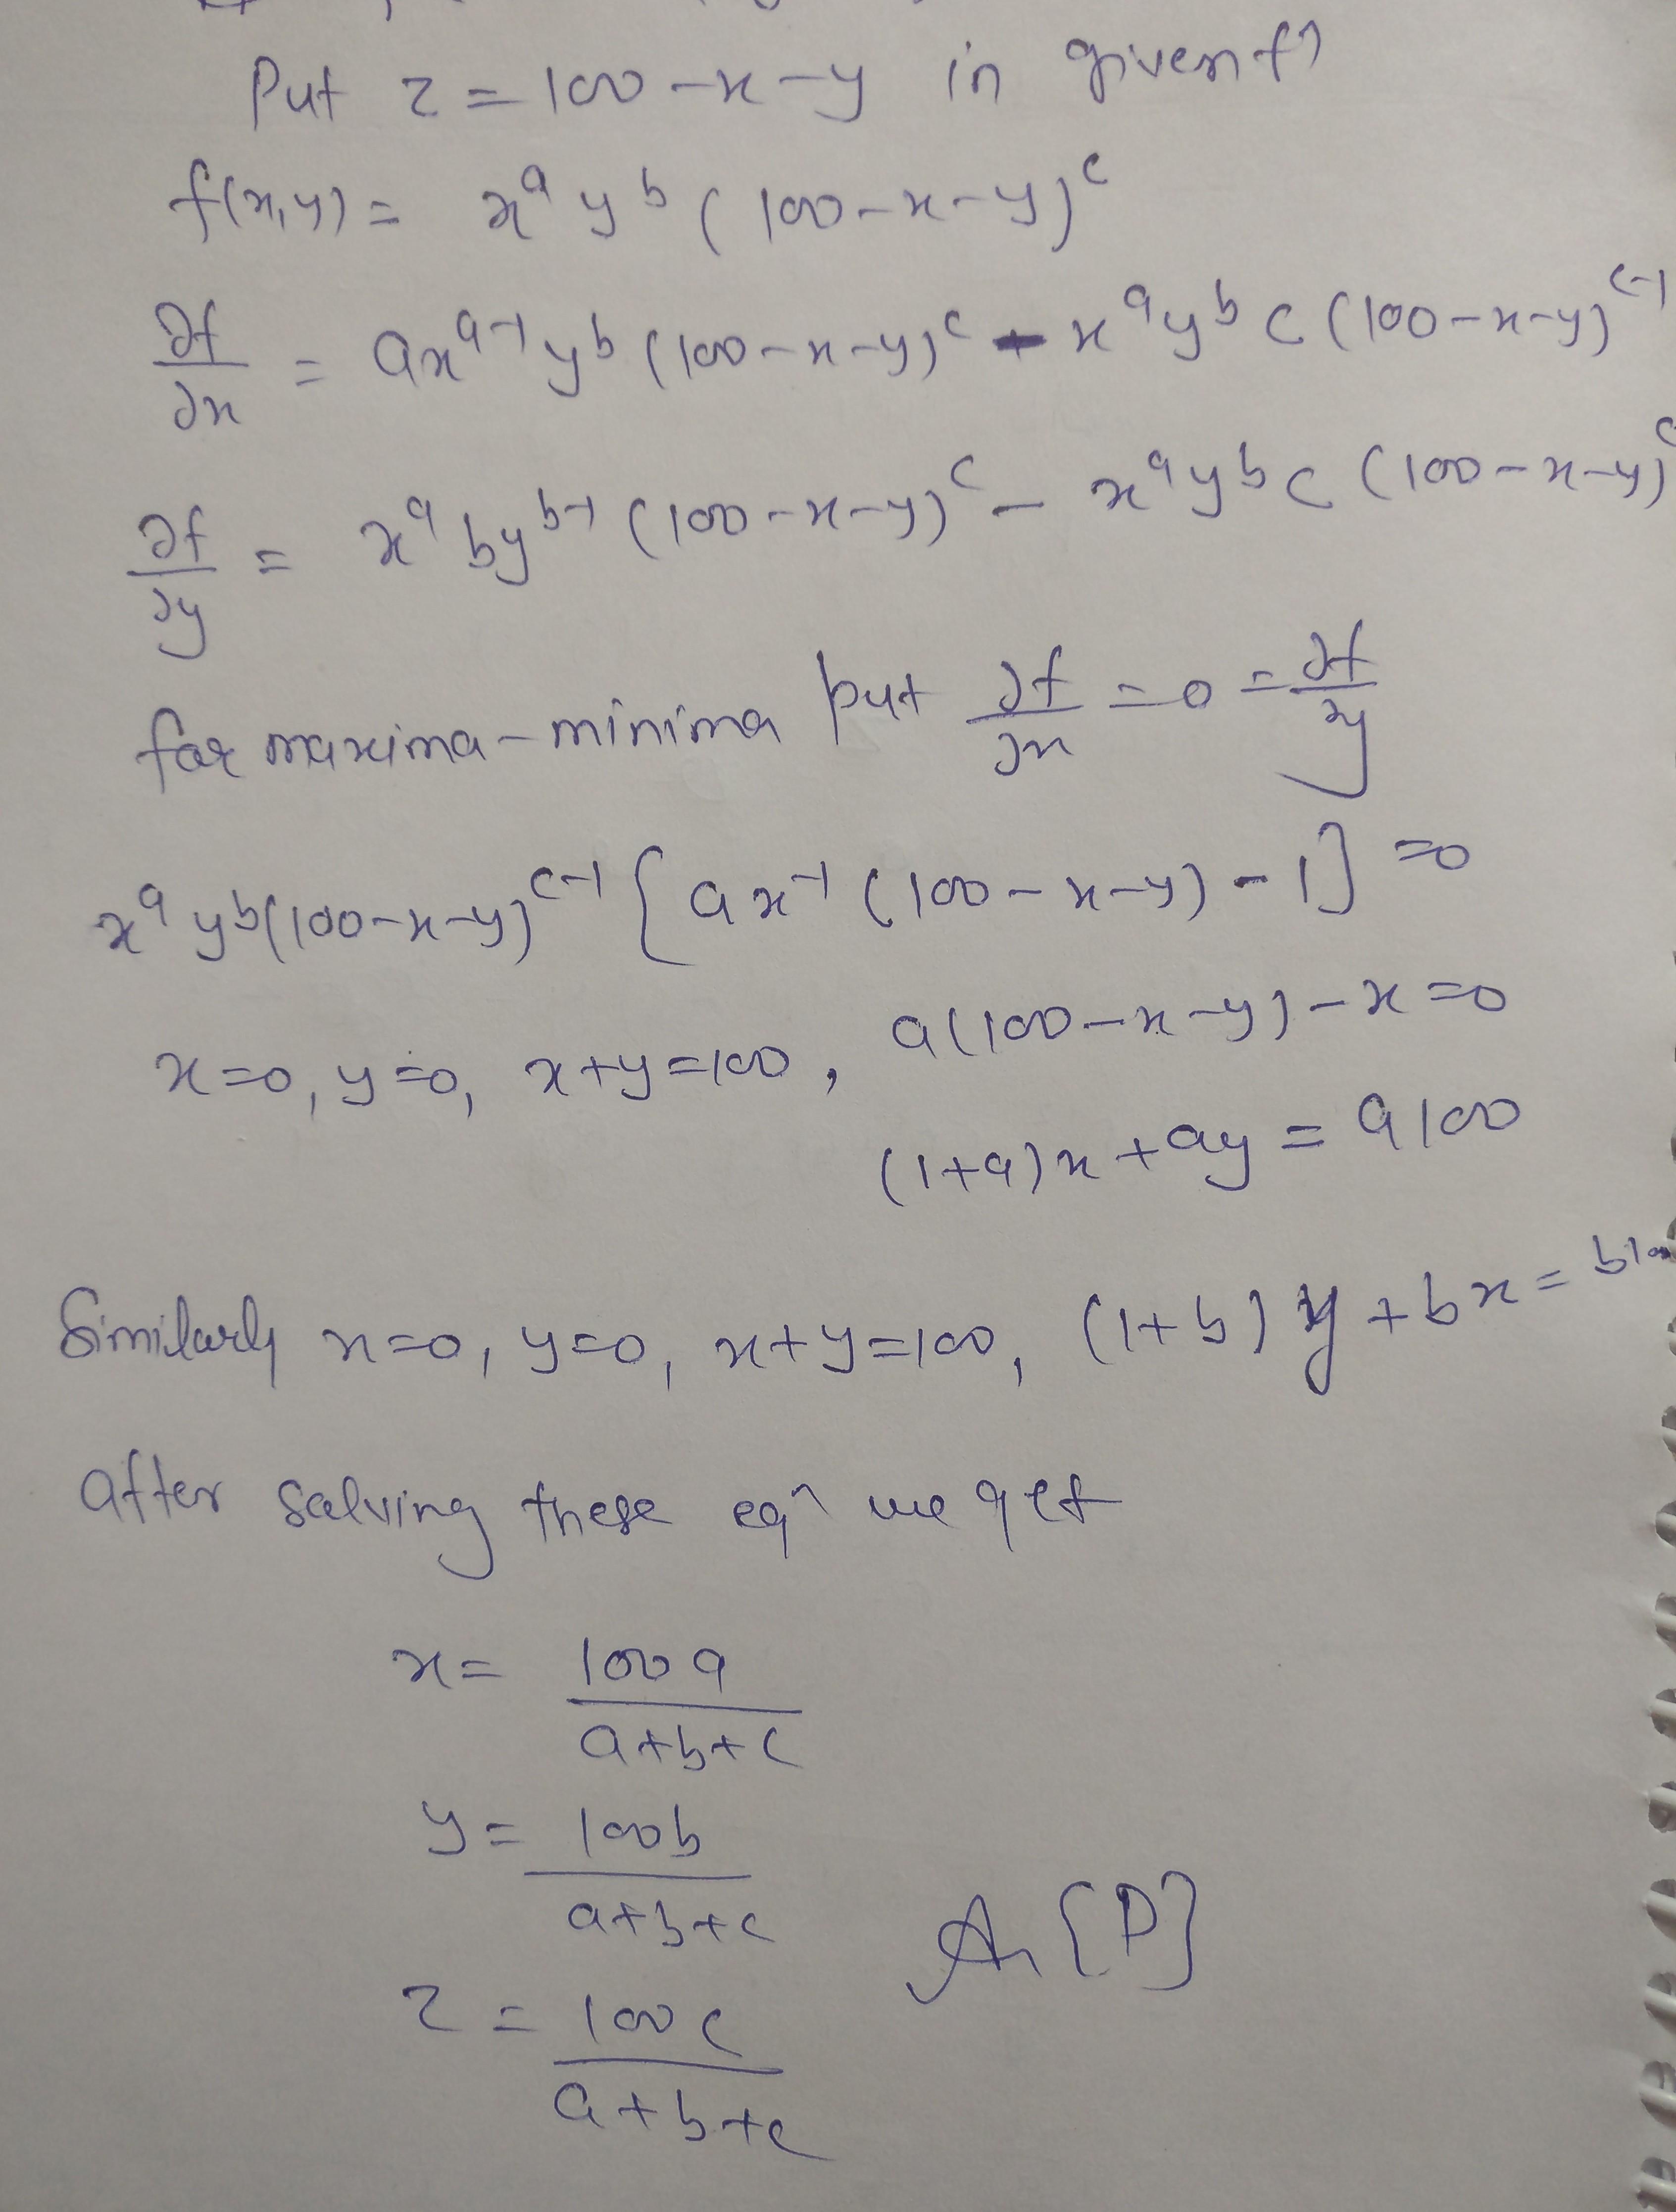 Put z = 100 - x - y in given f^n
f(x,y) = x^a y^b (100-x-y)^c
∂f/∂x = ax^{a-1} y^b (100-x-y)^c - x^a y^b c (100-x-y)^{c-1}
∂f/∂y = x^a by^{b-1} (100-x-y)^c - x^a y^b c (100-x-y)^c
for maxima-minima put ∂f/∂x = 0 = ∂f/∂y
x^a y^b (100-x-y)^{c-1} [ax^{-1} (100-x-y) - 1] = 0
x=0, y=0, x+y=100, a(100-x-y) - x = 0
(1+a)x + ay = a100
Similarly x=0, y=0, x+y=100, (1+b) y + bx = b100
After solving these eq^n we get
x = 100a/(a+b+c)
y = 100b/(a+b+c)
An [D]
z = 100c/(a+b+c)